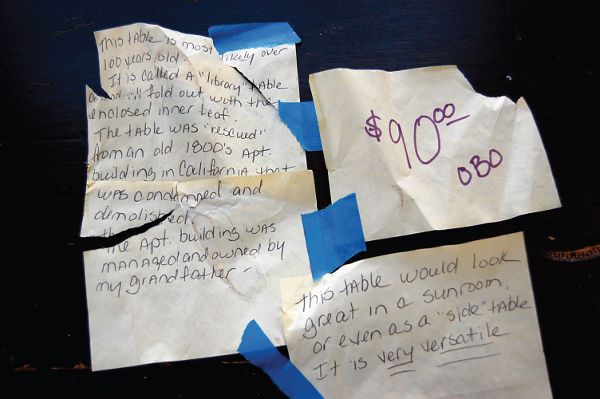 This tAble is most likely over
100 years old
It is called A "librAry" tAble
And will fold out with the
enclosed inner leaf.
The tAble was "rescued"
from an old 1800's Apt.
building in CAliforniA that
wAs condemned and
demolished.
the Apt. building wAs
mAnAged and owned by
my grAndfAther -
$90.00
OBO
This tAble would look
greAt in A sunroom,
or even as a "side" tAble
It is very versAtile